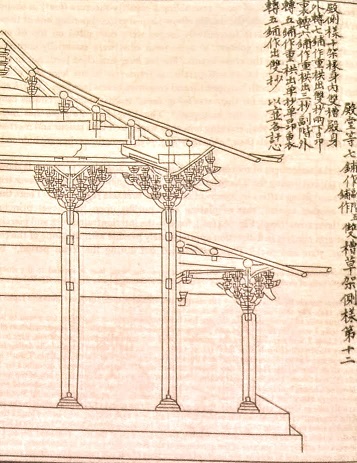 殿堂等七鋪作副階五鋪作雙槽草架側樣第十二
殿側樣十架椽身内雙槽殿身
外轉七鋪作重栱出雙抄兩下昂
裏轉六鋪作重栱出三抄副階外
轉五鋪作重栱出單抄單下昂裏
轉五鋪作出雙抄 以並各計心